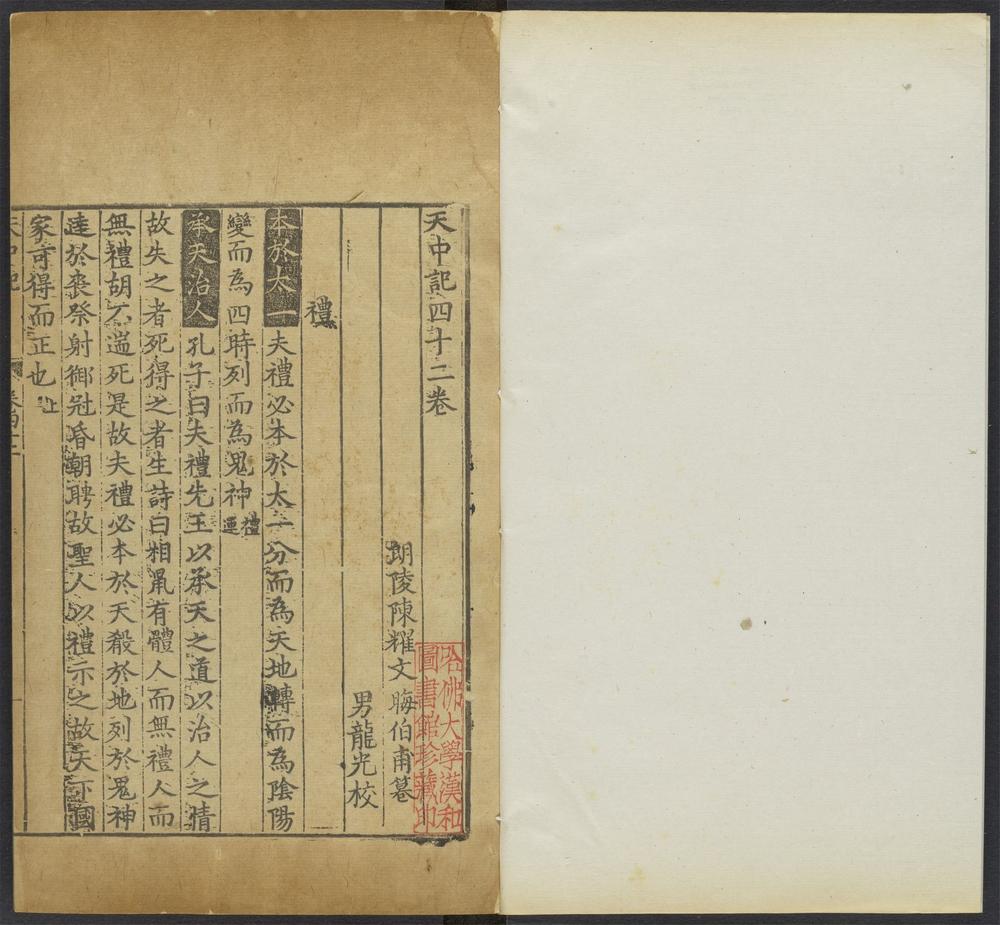 天中記四十二卷
朗陵陳耀文晦伯甫篹
男龍光校
禮
本於太一夫禮必本於太一分而為天地轉而為陰陽
變而為四時列而為鬼神禮運
承天治人孔子曰夫禮先王以承天之道以治人之情
故失之者死得之者生詩曰相鼠有體人而無禮人而
無禮胡不遄死是故夫禮必本於天殽於地列於鬼神
達於喪祭射御冠昏朝聘故聖人以禮示之故天下國
家可得而正也上
哈佛大學漢和
圖書館珍藏印